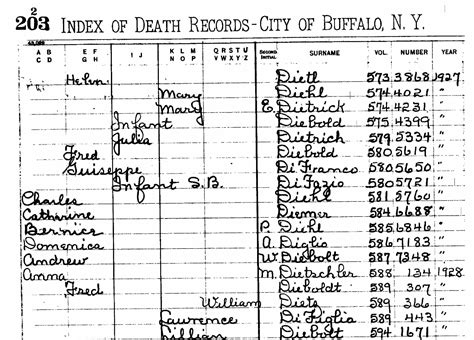 2
203 INDEX OF DEATH RECORDS-CITY OF BUFFALO, N. Y.
A B C D E F G H I J K L M N O P Q R S T U V W X Y Z SECOND INITIAL SURNAME VOL. NUMBER YEAR
Helen Dietl 573 3868 1927
Mary Diehl 574 4021 "
Mary E. Dietrick 574 4231 "
Infant Diebold 575 4399 "
Julia Dietrich 579 5334 "
Fred Diebold 580 5619 "
Guiseppe Di Franco 580 5650 "
Infant S.B. Di Fazio 580 5721 "
Charles Diehl 581 5760 "
Catherine Diemer 584 6688 "
Bernier P. Diehl 585 6846 "
Domenica A. Diglio 586 7183 "
Andrew W. Diebolt 587 7348 "
Anna M. Dietschler 588 134 1928
Fred Dieboldt 589 307 "
William Dietz 589 366 "
Lawrence Di Figlia 589 443 "
Lillian Diebolt 594 1671 "